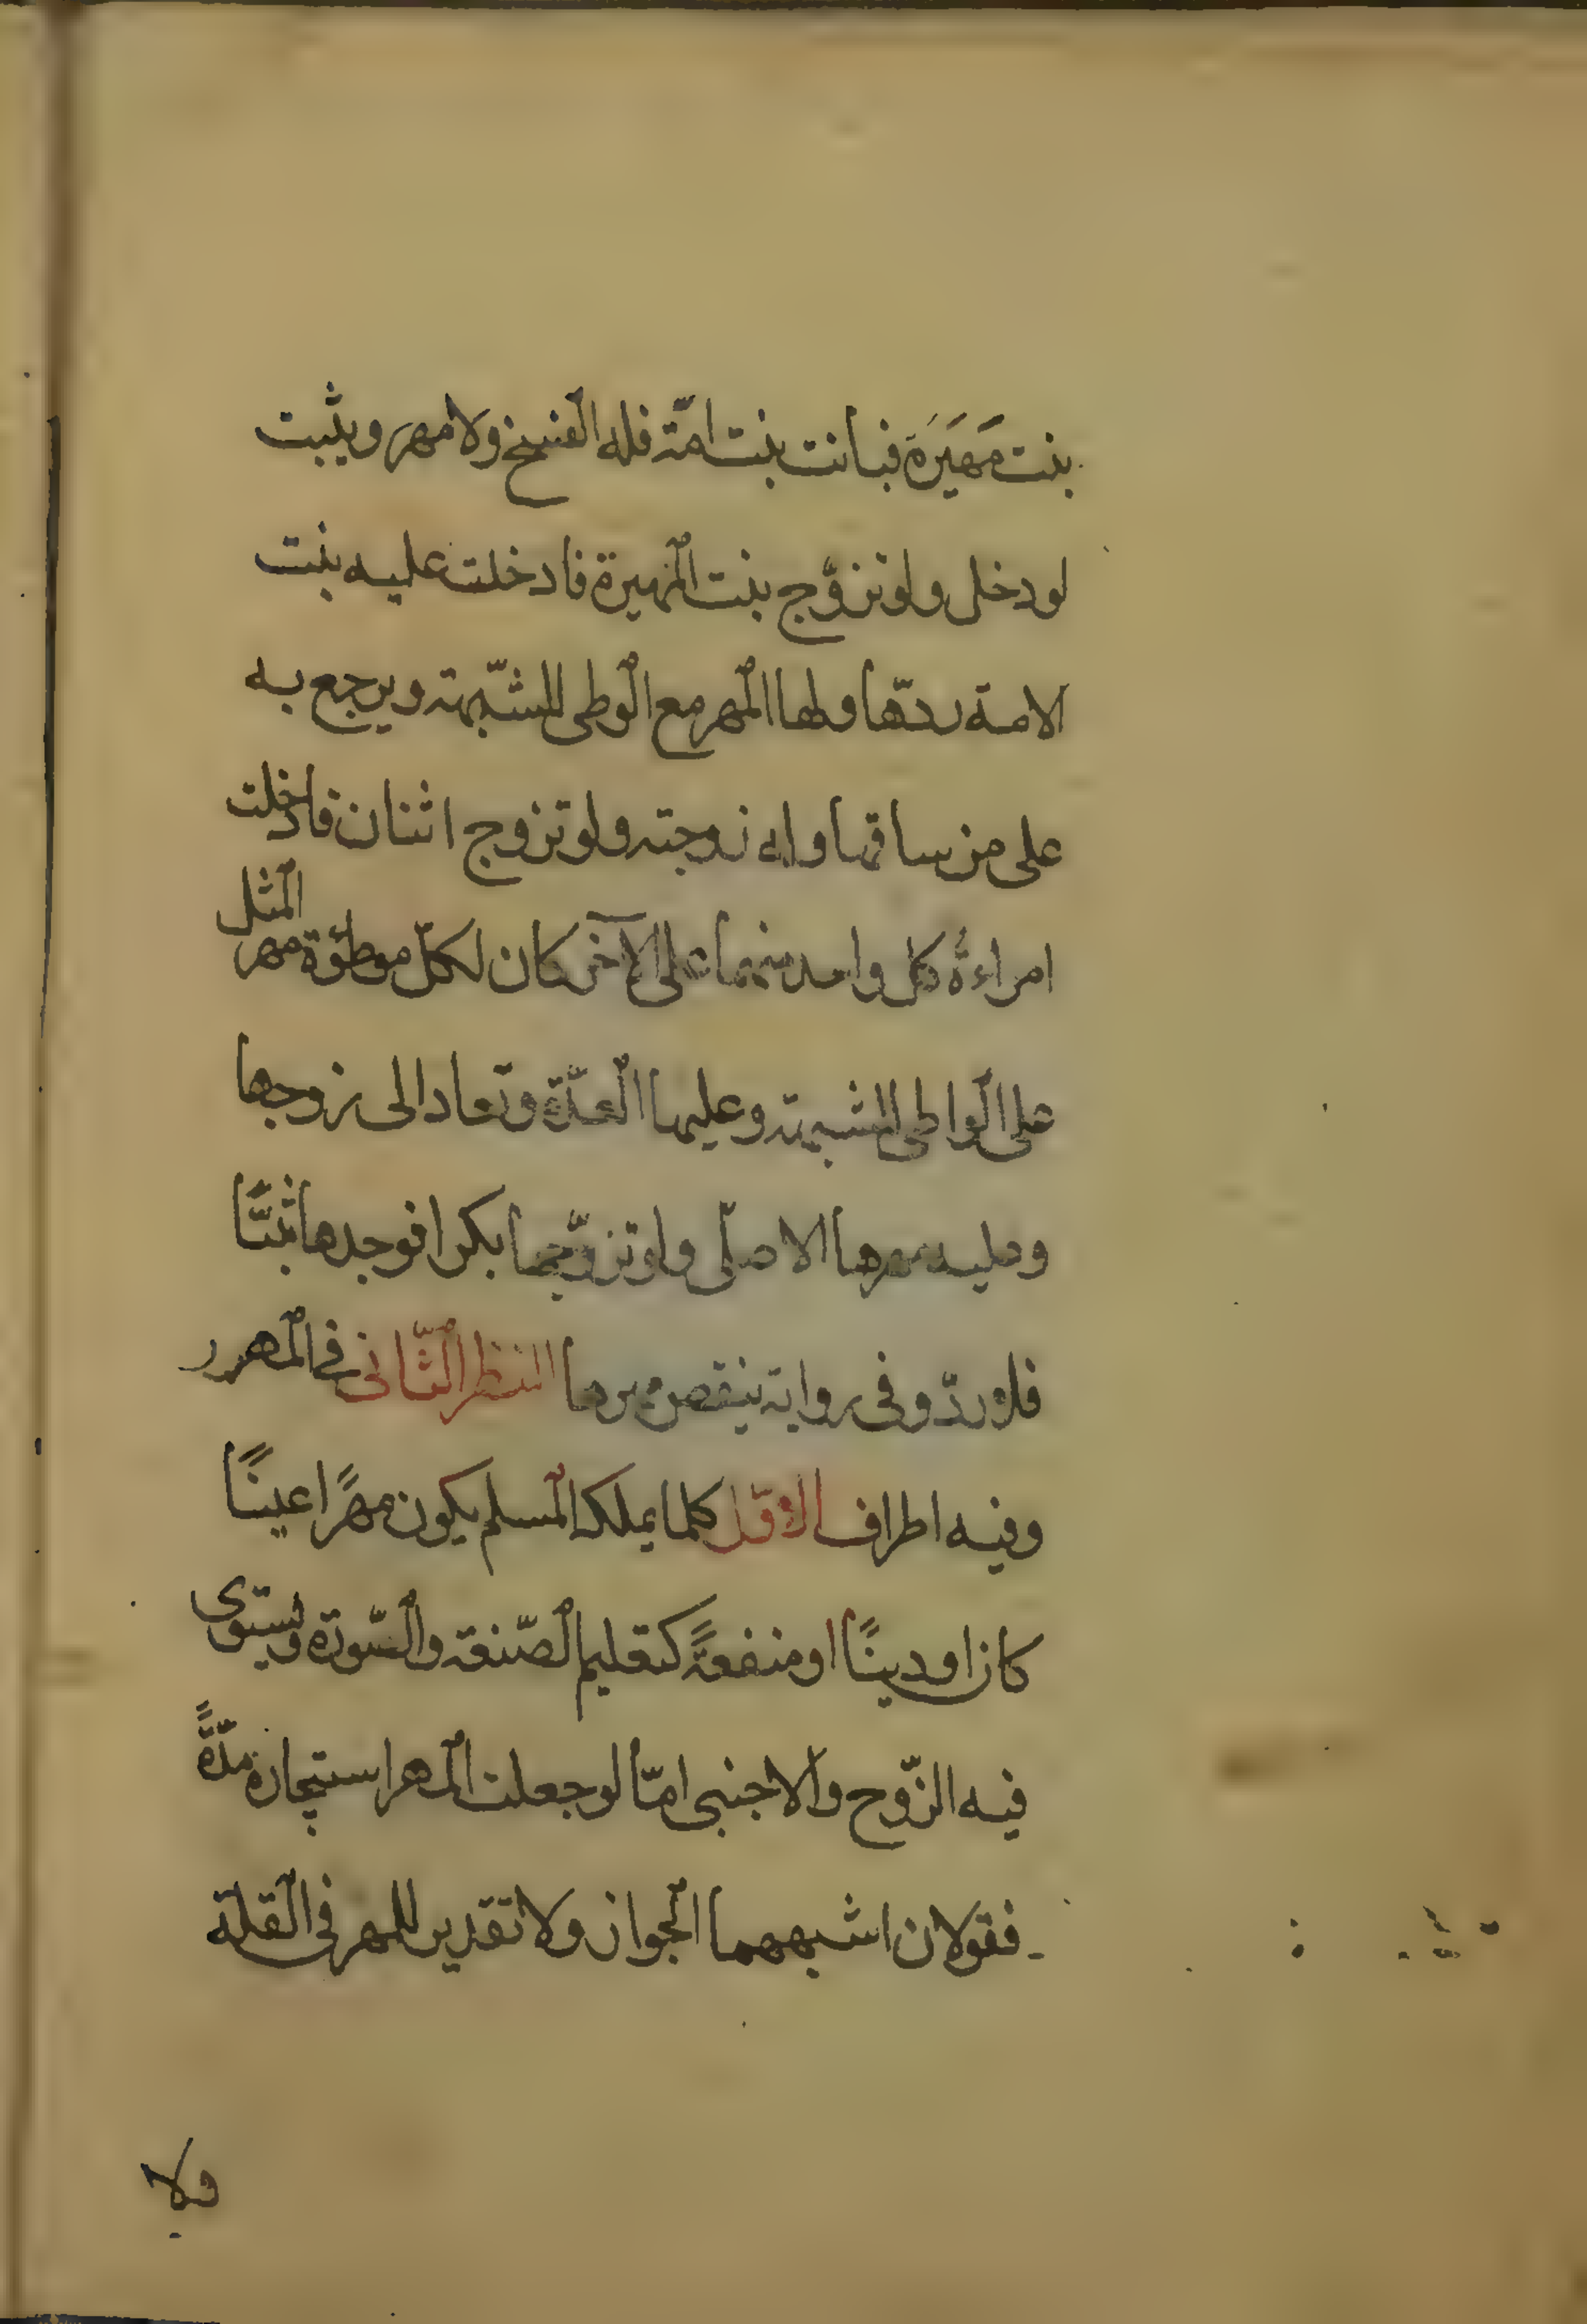 بنت مَهَيَرَة فبانت بنت امّة فله الفسخ ولا مهر ويثبت
لو دخل ولو تزوّج بنت المهيرة فادخلت عليه بنت
الامة ردّها ولها المهر مع الوطى للشّبهة ويرجع به
على من ساقها وله زوجته ولو تزوج اثنان فادخلت
امراءةُ كل واحد منهما على الآخر كان لكلّ موطؤة مهر المثل
على الواطى للشبهة وعليها العدّة وتعاد الى زوجها
وعليه مهرها الاصلّى ولو تزوّجها بكرا فوجدها ثيبًّا
فلا ردّ وفى رواية ينقص مهرها النظر الثّانى فى المهر
وفيه اطراف الاوّل كلما يملكه المسلم يكون مهرًا عينًا
كان او دينًا او منفعةً كتعليم الصّنعة والسّورة ويستوى
فيه الزّوج والاجنبى امّا لو جعلت المهر استيجاره مدّةً
فقولان اشبههما الجواز ولا تقدير للمهر فى القلة
ولا